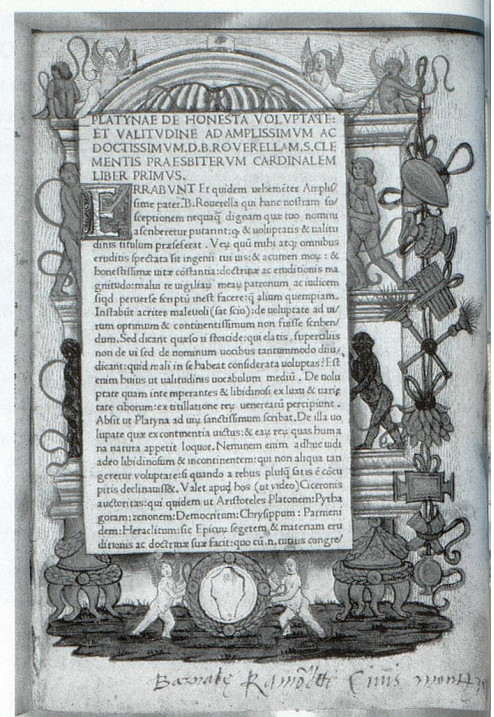 PLATYNAE DE HONESTA VOLVPTATE:
ET VALITVDINE AD AMPLISSIMVM AC
DOCTISSIMVM.D.B.ROVERELLAM.S.CLE
MENTIS PRAESBITERVM CARDINALEM
LIBER PRIMVS.
ERRABVNT Et quidem uehemēter Amplis
sime pater.B.Rouerella qui hanc nostram sus
ceptionem nequaq̄ dignam quæ tuo nomini
ascriberetur putarint: q & uoluptatis & ualitu
dinis titulum præseferat. Veȝ quū mihi atq; omnibus
eruditis spectata sit ingenii tui uis: & acumen moȝ: &
honestissimæ uitæ cōstantia: doctrinæ ac eruditionis ma
gnitudo: malui te uigiliaȝ meaȝ patronum ac iudicem
siqd peruerse scriptū inest facere: q̄ alium quempiam.
Instabūt acriter maleuoli (sat scio): de uoluptate ad ui
rum optimum & continentissimum non fuisse scriben/
dum. Sed dicant quæso ii stoicidæ: qui elatis superciliis
non de ui sed de nominum uocibus tantummodo diiu/
dicant: quid mali in se habeat considerata uoluptas? Est
enim huius ut ualitudinis uocabulum mediū. De uolu
ptate quam intemperantes & libidinosi ex luxu & uarie
tate ciborum: ex titillatione reȝ uenerearū percipiunt.
Absit ut Platyna ad uiȝ sanctissimum scribat. De illa uo
luptate quæ ex continentia uictus: & eaȝ reȝ quas huma
na natura appetit loquor. Neminem enim adhuc uidi
adeo libidinosum & incontinentem: qui non aliqua tan
geretur uoluptate: si quando a rebus plusq̄ satis ē concu
pitis declinauisset. Valet apud hos (ut video) Ciceronis
auctoritas: qui quidem ut Aristoteles Platonem: Pytha
goram: zenonem: Democritum: Chrysippum: Parmeni
dem: Heraclitum: sic Epicuȝ segetem & materiam eru
ditionis ac doctrinæ suæ facit: quo cū.n. tutius congre/
Barnabę